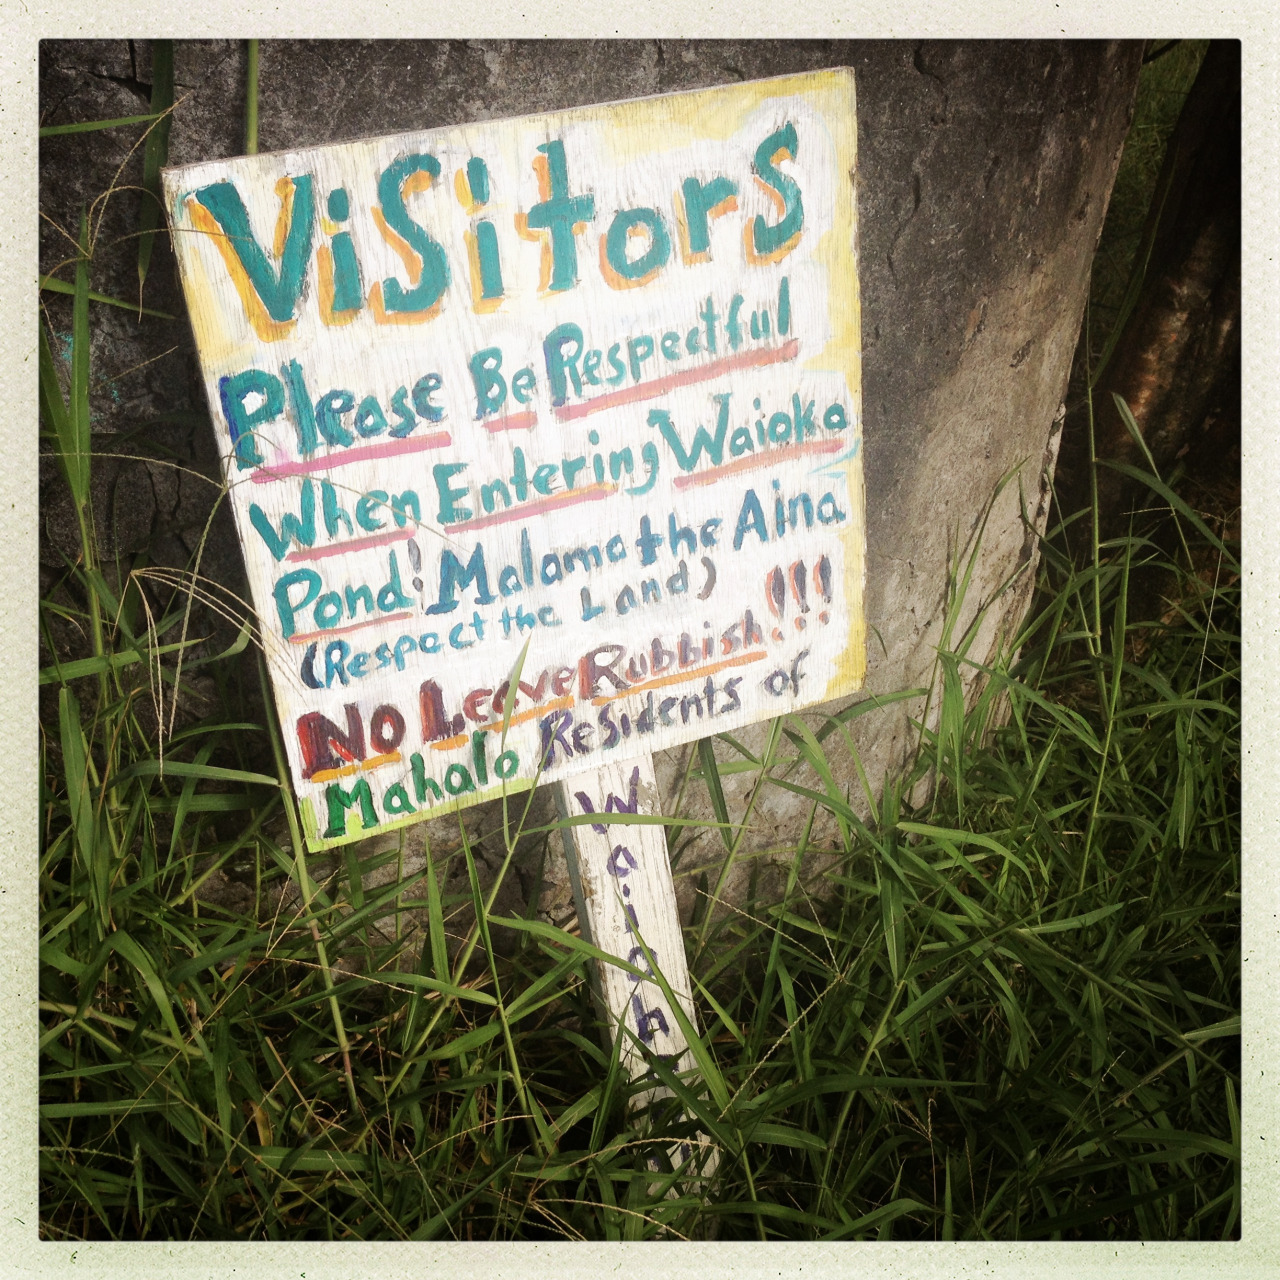 ViSitors
Please Be Respectful
When Entering Waioka
Pond! Malama the Aina
(Respect the Land)
No Leave Rubbish!!!
Mahalo Residents of